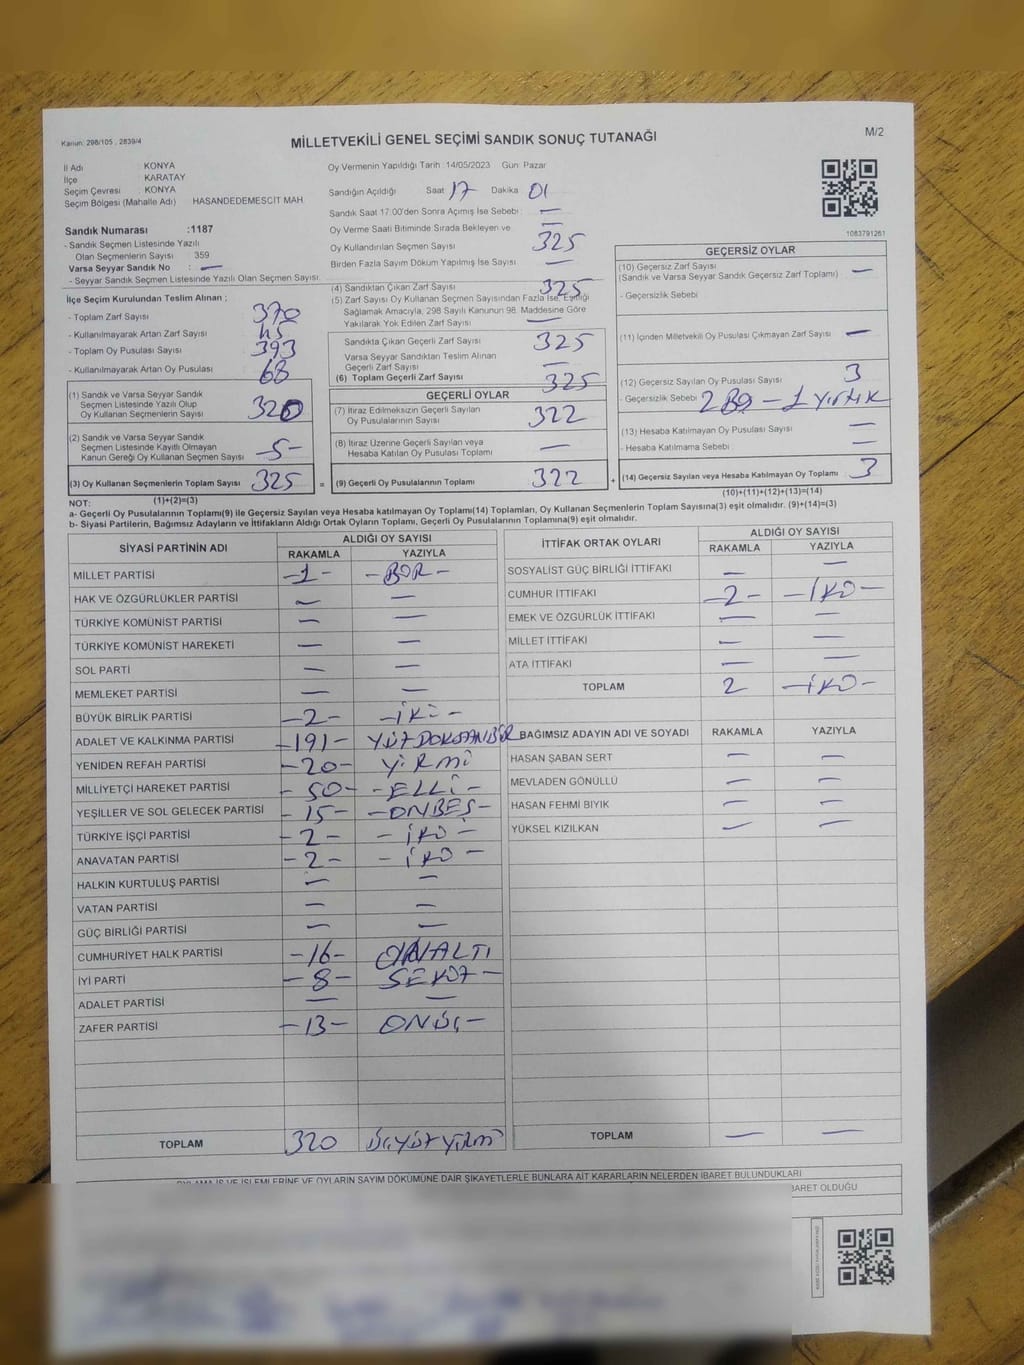 Kanun: 298/105 , 2839/4
MİLLETVEKİLİ GENEL SEÇİMİ SANDIK SONUÇ TUTANAĞI
M/2
İl Adı KONYA
İlçe KARATAY
Seçim Çevresi : KONYA
Seçim Bölgesi (Mahalle Adı) HASANDEDEMESCİT MAH.
Sandık Numarası :1187
- Sandık Seçmen Listesinde Yazılı
Olan Seçmenlerin Sayısı 359
Varsa Seyyar Sandık No : —
- Seyyar Sandık Seçmen Listesinde Yazılı Olan Seçmen Sayısı:
İlçe Seçim Kurulundan Teslim Alınan ;
- Toplam Zarf Sayısı 370
- Kullanılmayarak Artan Zarf Sayısı 45
- Toplam Oy Pusulası Sayısı 393
- Kullanılmayarak Artan Oy Pusulası 68
(1) Sandık ve Varsa Seyyar Sandık
Seçmen Listesinde Yazılı Olup
Oy Kullanan Seçmenlerin Sayısı 320
(2) Sandık ve Varsa Seyyar Sandık
Seçmen Listesinde Kayıtlı Olmayan
Kanun Gereği Oy Kullanan Seçmen Sayısı -5-
(3) Oy Kullanan Seçmenlerin Toplam Sayısı 325 =
Oy Vermenin Yapıldığı Tarih : 14/05/2023 Gün: Pazar
Sandığın Açıldığı Saat 17 Dakika 01
Sandık Saat 17:00'den Sonra Açımış İse Sebebi : —
Oy Verme Saati Bitiminde Sırada Bekleyen ve —
Oy Kullandırılan Seçmen Sayısı 325
Birden Fazla Sayım Döküm Yapılmış İse Sayısı —
(4) Sandıktan Çıkan Zarf Sayısı 325
(5) Zarf Sayısı Oy Kullanan Seçmen Sayısından Fazla İse, Eşitliği
Sağlamak Amacıyla, 298 Sayılı Kanunun 98. Maddesine Göre
Yakılarak Yok Edilen Zarf Sayısı —
Sandıkta Çıkan Geçerli Zarf Sayısı 325
Varsa Seyyar Sandıktan Teslim Alınan
Geçerli Zarf Sayısı —
(6) Toplam Geçerli Zarf Sayısı 325
GEÇERLİ OYLAR
(7) İtiraz Edilmeksizin Geçerli Sayılan
Oy Pusulalarının Sayısı 322
(8) İtiraz Üzerine Geçerli Sayılan veya
Hesaba Katılan Oy Pusulası Toplamı —
(9) Geçerli Oy Pusulalarının Toplamı 322 +
1083791261
GEÇERSİZ OYLAR
(10) Geçersiz Zarf Sayısı
(Sandık ve Varsa Seyyar Sandık Geçersiz Zarf Toplamı) —
- Geçersizlik Sebebi
(11) İçinden Milletvekili Oy Pusulası Çıkmayan Zarf Sayısı —
(12) Geçersiz Sayılan Oy Pusulası Sayısı 3
- Geçersizlik Sebebi 2 Boş - 1 yırtık
(13) Hesaba Katılmayan Oy Pusulası Sayısı —
- Hesaba Katılmama Sebebi : —
(14) Geçersiz Sayılan veya Hesaba Katılmayan Oy Toplamı 3
NOT: (1)+(2)=(3) (10)+(11)+(12)+(13)=(14)
a- Geçerli Oy Pusulalarının Toplamı(9) ile Geçersiz Sayılan veya Hesaba katılmayan Oy Toplamı(14) Toplamları, Oy Kullanan Seçmenlerin Toplam Sayısına(3) eşit olmalıdır. (9)+(14)=(3)
b- Siyasi Partilerin, Bağımsız Adayların ve İttifakların Aldığı Ortak Oyların Toplamı, Geçerli Oy Pusulalarının Toplamına(9) eşit olmalıdır.
SİYASİ PARTİNİN ADI ALDIĞI OY SAYISI
RAKAMLA YAZIYLA
MİLLET PARTİSİ -1- -BİR-
HAK VE ÖZGÜRLÜKLER PARTİSİ — —
TÜRKİYE KOMÜNİST PARTİSİ — —
TÜRKİYE KOMÜNİST HAREKETİ — —
SOL PARTİ — —
MEMLEKET PARTİSİ — —
BÜYÜK BİRLİK PARTİSİ -2- -İKİ-
ADALET VE KALKINMA PARTİSİ -191- YÜZDOKSANBİR
YENİDEN REFAH PARTİSİ -20- YİRMİ
MİLLİYETÇİ HAREKET PARTİSİ -50- -ELLİ-
YEŞİLLER VE SOL GELECEK PARTİSİ -15- -ONBEŞ-
TÜRKİYE İŞÇİ PARTİSİ -2- -İKİ-
ANAVATAN PARTİSİ -2- -İKİ-
HALKIN KURTULUŞ PARTİSİ — —
VATAN PARTİSİ — —
GÜÇ BİRLİĞİ PARTİSİ — —
CUMHURİYET HALK PARTİSİ -16- ONALTI
İYİ PARTİ -8- SEKİZ-
ADALET PARTİSİ — —
ZAFER PARTİSİ -13- ONÜÇ-
TOPLAM 320 ÜÇYÜZYİRMİ
İTTİFAK ORTAK OYLARI ALDIĞI OY SAYISI
RAKAMLA YAZIYLA
SOSYALİST GÜÇ BİRLİĞİ İTTİFAKI — —
CUMHUR İTTİFAKI -2- -İKİ-
EMEK VE ÖZGÜRLÜK İTTİFAKI — —
MİLLET İTTİFAKI — —
ATA İTTİFAKI — —
TOPLAM 2 -İKİ-
BAĞIMSIZ ADAYIN ADI VE SOYADI RAKAMLA YAZIYLA
HASAN ŞABAN SERT — —
MEVLADEN GÖNÜLLÜ — —
HASAN FEHMİ BIYIK — —
YÜKSEL KIZILKAN — —
TOPLAM — —
OYLAMA İŞ VE İŞLEMLERİNE VE OYLARIN SAYIM DÖKÜMÜNE DAİR ŞİKAYETLERLE BUNLARA AİT KARARLARIN NELERDEN İBARET BULUNDUKLARI
BARET OLDUĞU